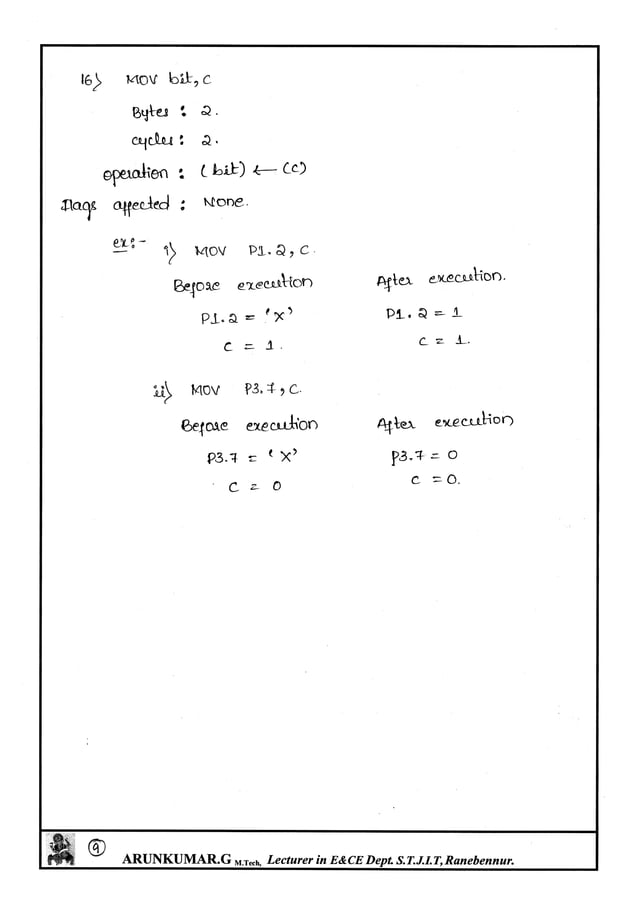 16) MOV bit, C
Bytes : 2.
cycles : 2.
operation : (bit) ← (C)
Flags affected : None.
ex:- i) MOV P1.2, C.
Before execution After execution.
P1.2 = 'X' P1.2 = 1
C = 1. C = 1.
ii) MOV P3.7, C.
Before execution After execution
P3.7 = 'X' P3.7 = 0
C = 0 C = 0.
9
ARUNKUMAR.G M.Tech, Lecturer in E&CE Dept. S.T.J.I.T, Ranebennur.